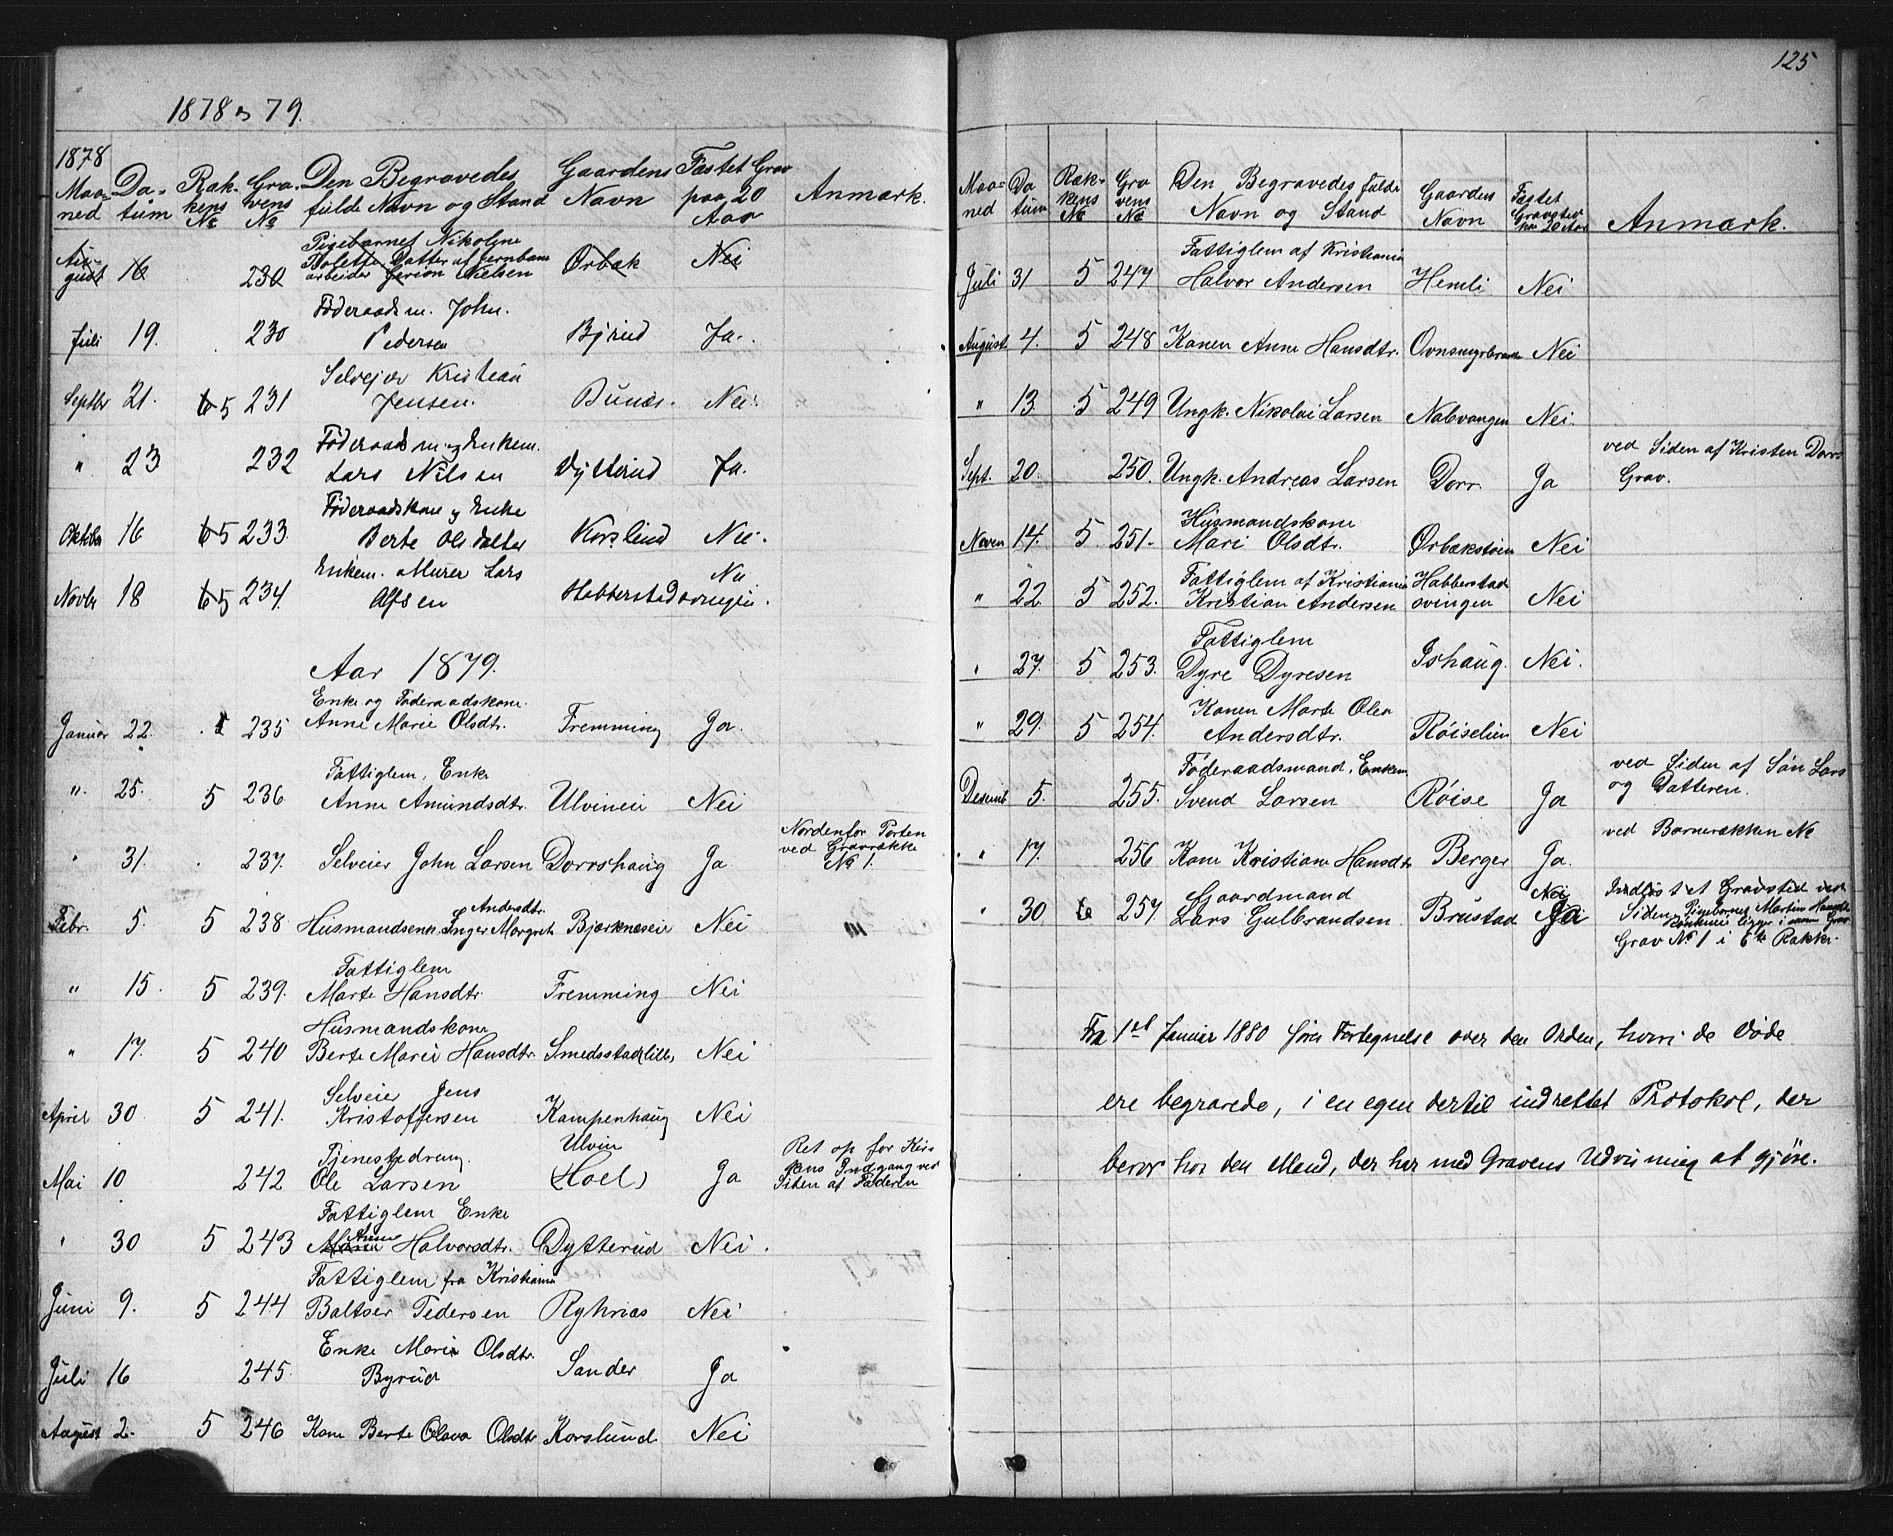 125
1878 & 79.
1878
Maaned Datum Rækkens No Gravens No Den Begravedes fulde Navn og Stand Gaardens Navn Fæstet Grav paa 20 Aar Anmærk.
August 16 230 Pigebarnet Nikoline
Bolette, Datter af Jernbane
arbeider Nielsen Ørbæk Nei
Føderaadsm. John.
Juli 19. 230 Pedersen Ja.
Selvejer Kristian
Septbr 21. 6 5 231 Jensen. Nei.
Føderaadsm. og Enkem.
" 23 232 Lars Nilsen Dytterud Ja.
Føderaadskone og Enke
Oktober 16 6 5 233. Berte Olsdatter Korslund Nei.
Enkem. Murer Lars
Novbr 18 6 5 234. Olsen Habberstadsvingen. Nei
Aar 1879.
Enke og Føderaadskone.
Januar 22. 235 Anne Marie Olsdtr. Fremming Ja.
Fattiglem, Enke
". 25. 5 236 Anne Amundsdtr. Ulvineie Nei
" 31. 237. Selveier John Larsen Dorrshaug Ja Nordenfor Porten
ved Gravrække
No 1.
Febr. 5. 5 238 Husmandsenke Inger Margrete Andersdtr. Bjørkneseie Nei
Fattiglem
" 15. 5 239. Marte Hansdtr. Fremming Nei
Husmandskone
" 17. 5 240 Berte Marie Hansdtr. Smedsstad lille, Nei
Selveier Jens
April 30. 5 241. Kristoffersen Kampenhaug Nei
Tjenestedreng.
Mai 10 242 Ole Larsen Ulvin (Hoel) Ja Ret op for Kirkens Indgang ved
Siden af Faderen
Fattiglem Enke
" 30 5 243 Marie Anne Halvorsdtr. Dytterud Nei.
Fattiglem fra Kristiania
Juni 9. 5 244 Baltser Pedersen Ryhnæs Nei
Enke Marie Olsdtr.
Juli 16 245. Byrud Sander Ja
August 2. 5 246 Kone Berte Olava Olsdtr Korslund Nei
Maaned Datum Rækkens No Gravens No Den Begravedes fulde Navn og Stand Gaardens Navn Fæstet Gravsted paa 20 Aar Anmærk.
Fattiglem af Kristiania
Juli 31 5 247 Halvor Andersen Hemli Nei
August 4. 5 248 Konen Anne Hansdtr. Nei
" 13 5 249 Ungk. Nikolai Larsen Nabvangen Nei.
Sept. 20. 250. Ungk. Andreas Larsen Dorr. Ja ved Siden af Kristen Dorrs
Grav.
Husmandskone
Novem 14. 5. 251. Mari Olsdtr. Ørbækstøen Nei
Fattiglem af Kristiania
" 22 5 252. Kristian Andersen Habberstadsvingen Nei
Fattiglem
" 27. 5 253. Dyre Dyresen Ishaug. Nei.
Konen Marte Olea
" 29. 5 254. Andersdtr. Røiselien Nei
Føderaadsmand, Enkem
Decemb 5. 255. Svend Larsen Røise Ja ved Siden af Søn Lars
og Datteren.
" 17. 256 Kone Kristiane Hansdtr Berger Ja. ved Barnerækken No
Gaardmand
" 30 6 257 Lars Gulbrandsen Brustad Nei Ja Indløst et Gravsted ved
Siden
Grav No 1 i 6te Række.
Fra 1ste Januar 1880 føres Fortegnelse over den Orden, hvori de Døde
ere begravede, i en egen dertil indrettet Protokol, der
beror hos den Mand, der har med Gravens Udvisning at gjøre.